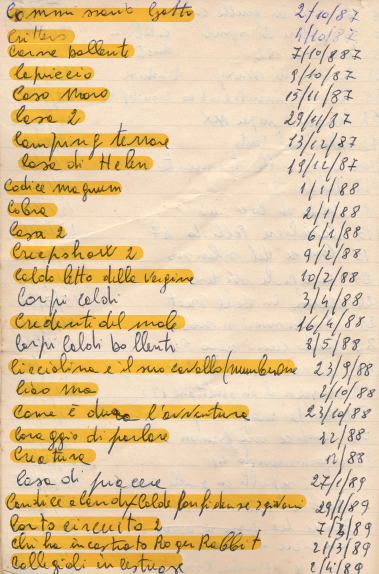 Commissario Gatto 2/10/87
Critters 4/10/87
Carne bollente 7/10/887
Capriccio 9/10/87
Caso Moro 15/11/87
Casa 2 29/11/87
Camping terrore 13/12/87
Casa di Helen 19/12/87
Codice magnum 1/1/88
Cobra 2/1/88
Casa 2 6/1/88
Creepshow 2 9/2/88
Caldo letto della vergine 10/2/88
Corpi caldi 3/4/88
Credenti del male 16/4/88
Corpi caldi bollenti 8/5/88
Cicciolina e il suo cavallo 23/9/88
Ciao ma 2/10/88
Come è dura l'avventura 23/10/88
Coraggio di parlare 12/88
Creatura 12/88
Casa di piacere 27/1/89
Calde 29/1/89
Corto circuito 2 7/3/89
Chi ha incastrato Roger Rabbit 21/3/89
Collegiali in 2/4/89